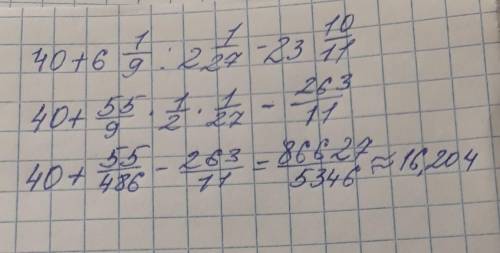 40+6 1/9 : 2 1/27 - 23 10/11
40+ 55/9 · 1/2 · 1/27 - 263/11
40+ 55/486 - 263/11 = 86627/5346 ≈ 16,204